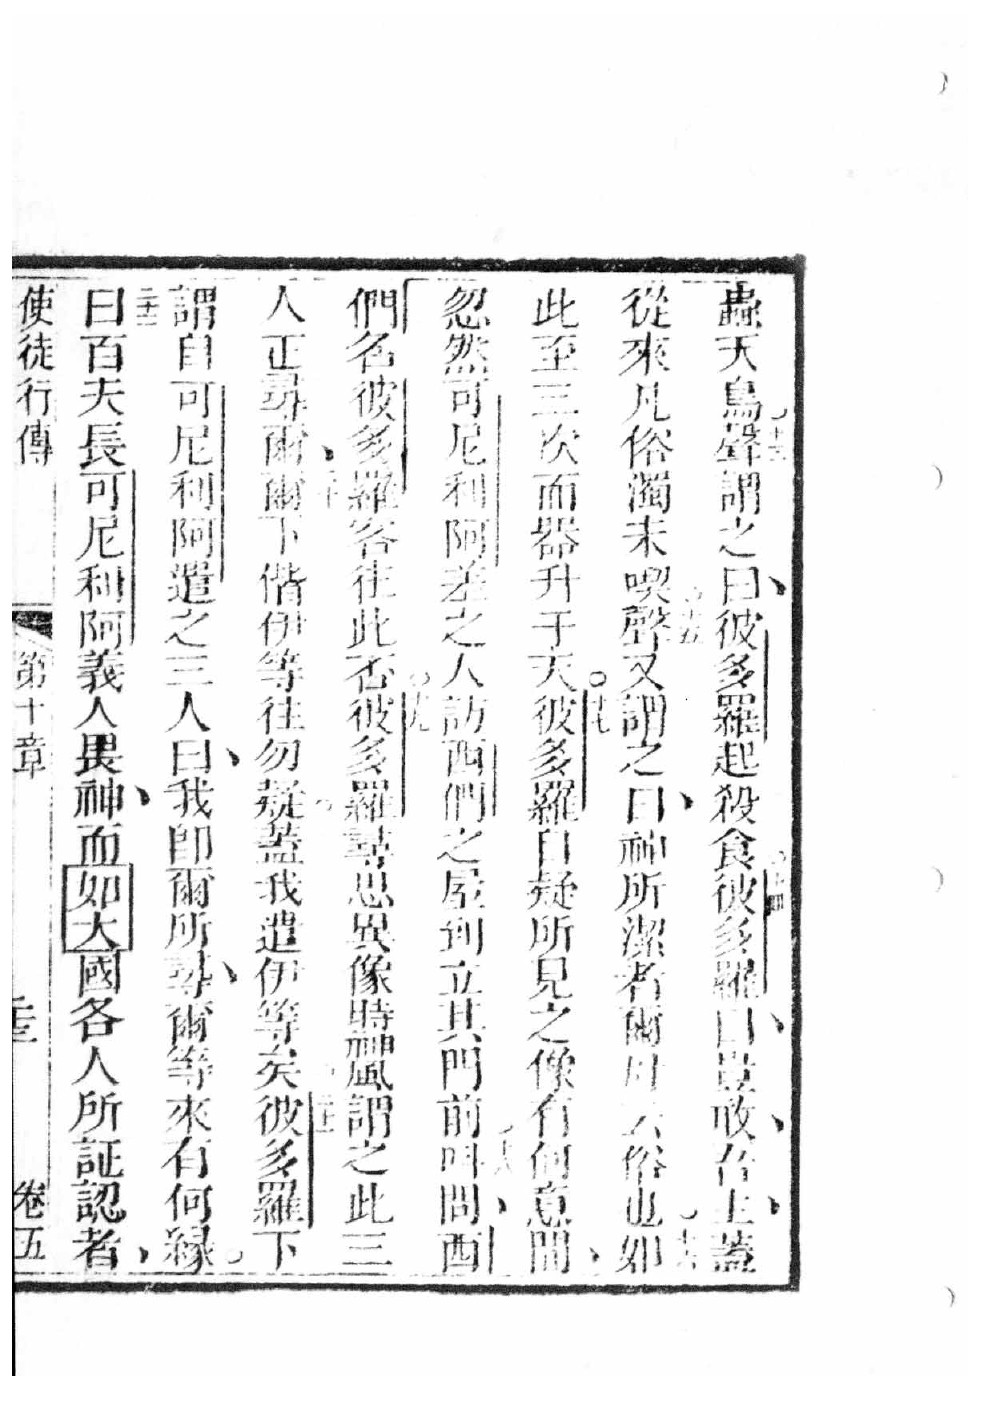 蟲天鳥十三聲謂之曰彼多羅起殺食十四彼多羅曰豈敢召主蓋
從來凡俗濁未喫十五聲又謂之曰神所潔者爾毋云俗也十六如
此至三次而器升于天十七彼多羅自疑所見之像有何意間
忽然可尼利阿差之人訪西們之屋到立其門前十八叫問西
們名彼多羅客在此否十九彼多羅尋思異像時神風謂之此三
人正尋爾二十爾下偕伊等往勿疑蓋我遣伊等矣二十一彼多羅下
謂自可尼利阿遣之三人曰我卽爾所尋爾等來有何緣
二十二曰百夫長可尼利阿義人畏神而如大國各人所証認者
使徒行傳 第十章 卷五